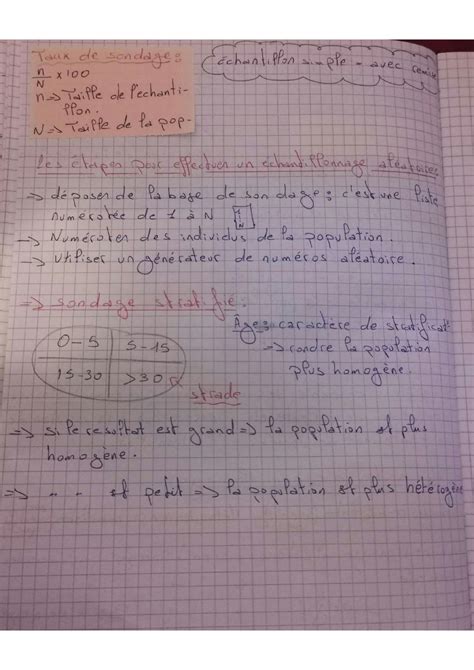 Taux de sondage:
n/N x 100
n => Taille de l'échanti-
llon.
N => Taille de la pop-
échantillon simple - avec remise
Les étapes pour effectuer un échantillonnage aléatoires
-> déposer de la base de sondage : c'est une liste
numérotée de 1 à N [1 N]
-> Numéroter des individus de la population.
-> utiliser un générateur de numéros aléatoire.
=> sondage stratifié:
Âges: caractère de stratificat°
=> rendre la population
plus homogène.
0-5 | 5-15
15-30 | >30
strade
=> si le resultat est grand => la population est plus
homogène.
=> " " est petit => la population est plus hétérogène